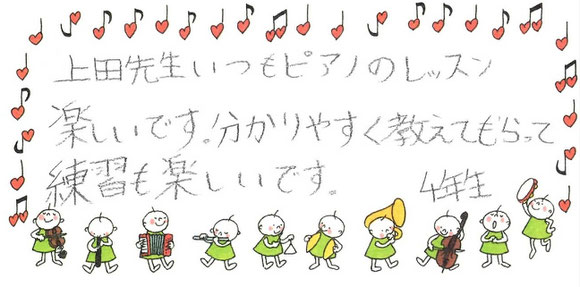 上田先生いつもピアノのレッスン
楽しいです。分かりやすく教えてもらって
練習も楽しいです。 4年生